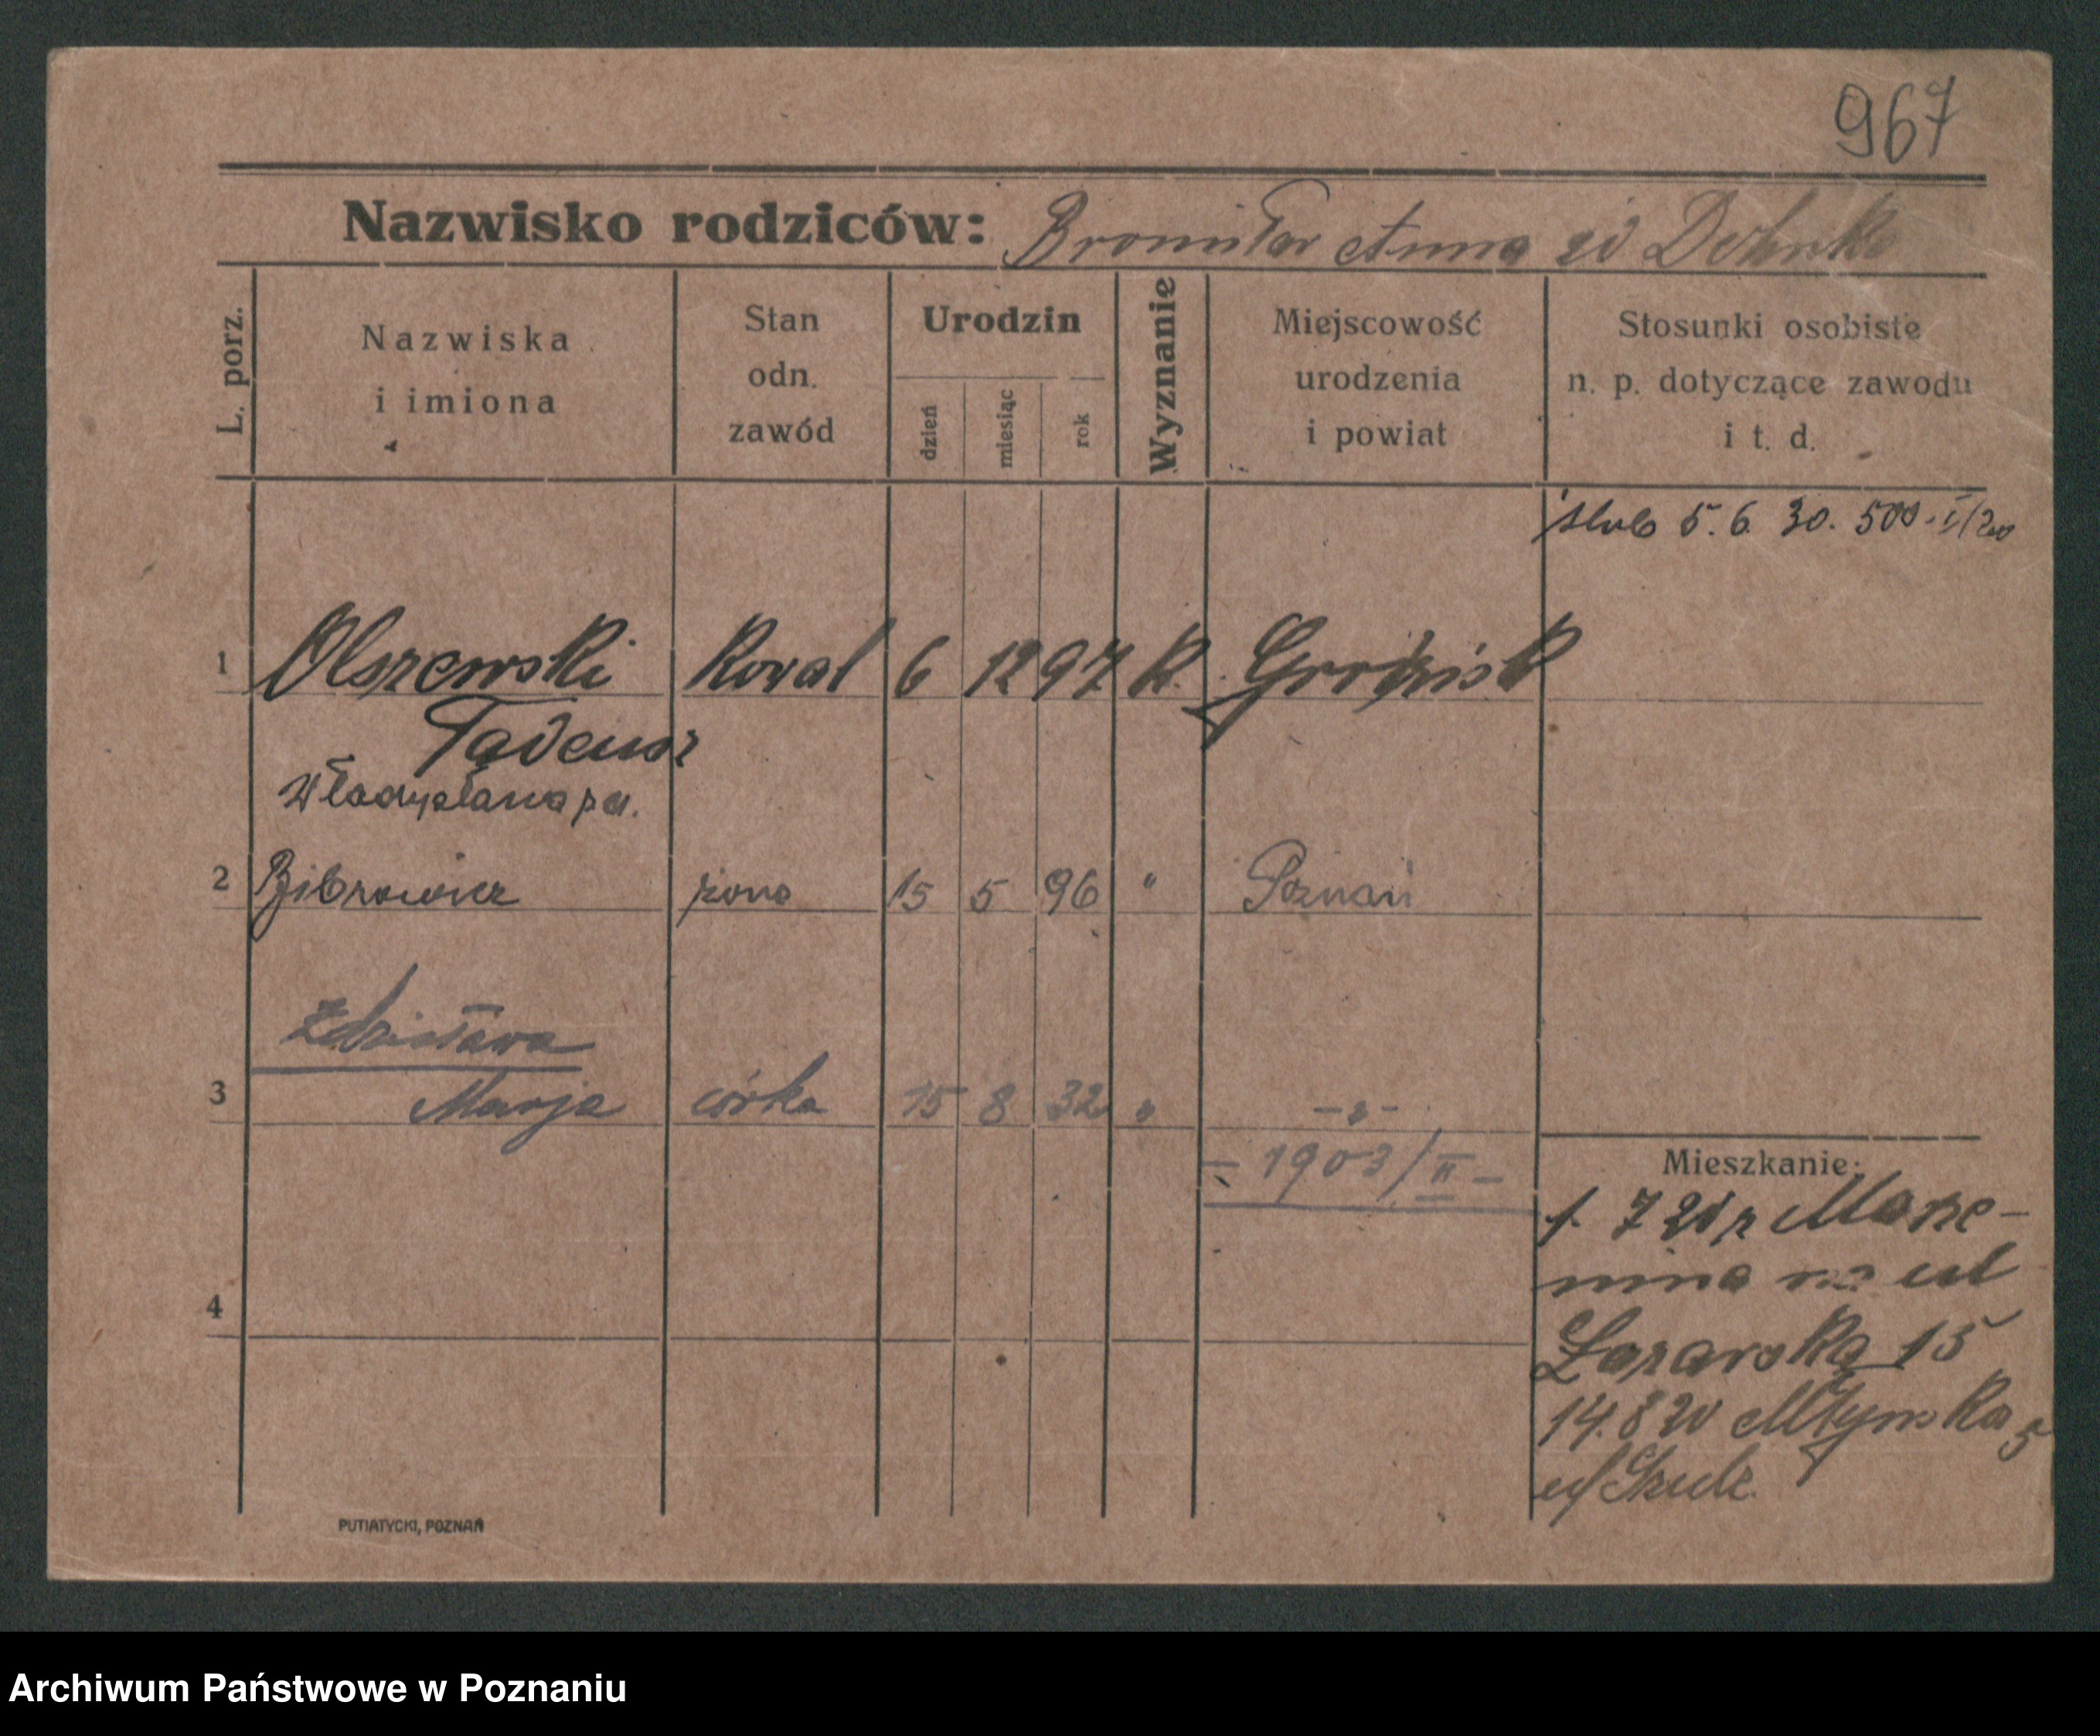 967
Nazwisko rodziców: Bronisław Anna
L. porz.
Nazwiska i imiona
Stan odn. zawód
Urodzin
dzień
miesiąc
rok
Wyznanie
Miejscowość urodzenia i powiat
Stosunki osobiste n. p. dotyczące zawodu i t. d.
ślub 5. 6. 30. 500
1 Olszewski Kowal 6 12 97 K. Grodzisk
Tadeusz
Władysława
2 żona 15 5 96 " Poznań
Zdzisława
3 Marja córka 15 8 32 " -"-
- 1903/II -
Mieszkanie:
na ul
Łazarska 15
4
14. 8 20 Młyńska 5
PUTIATYCKI, POZNAŃ
Archiwum Państwowe w Poznaniu